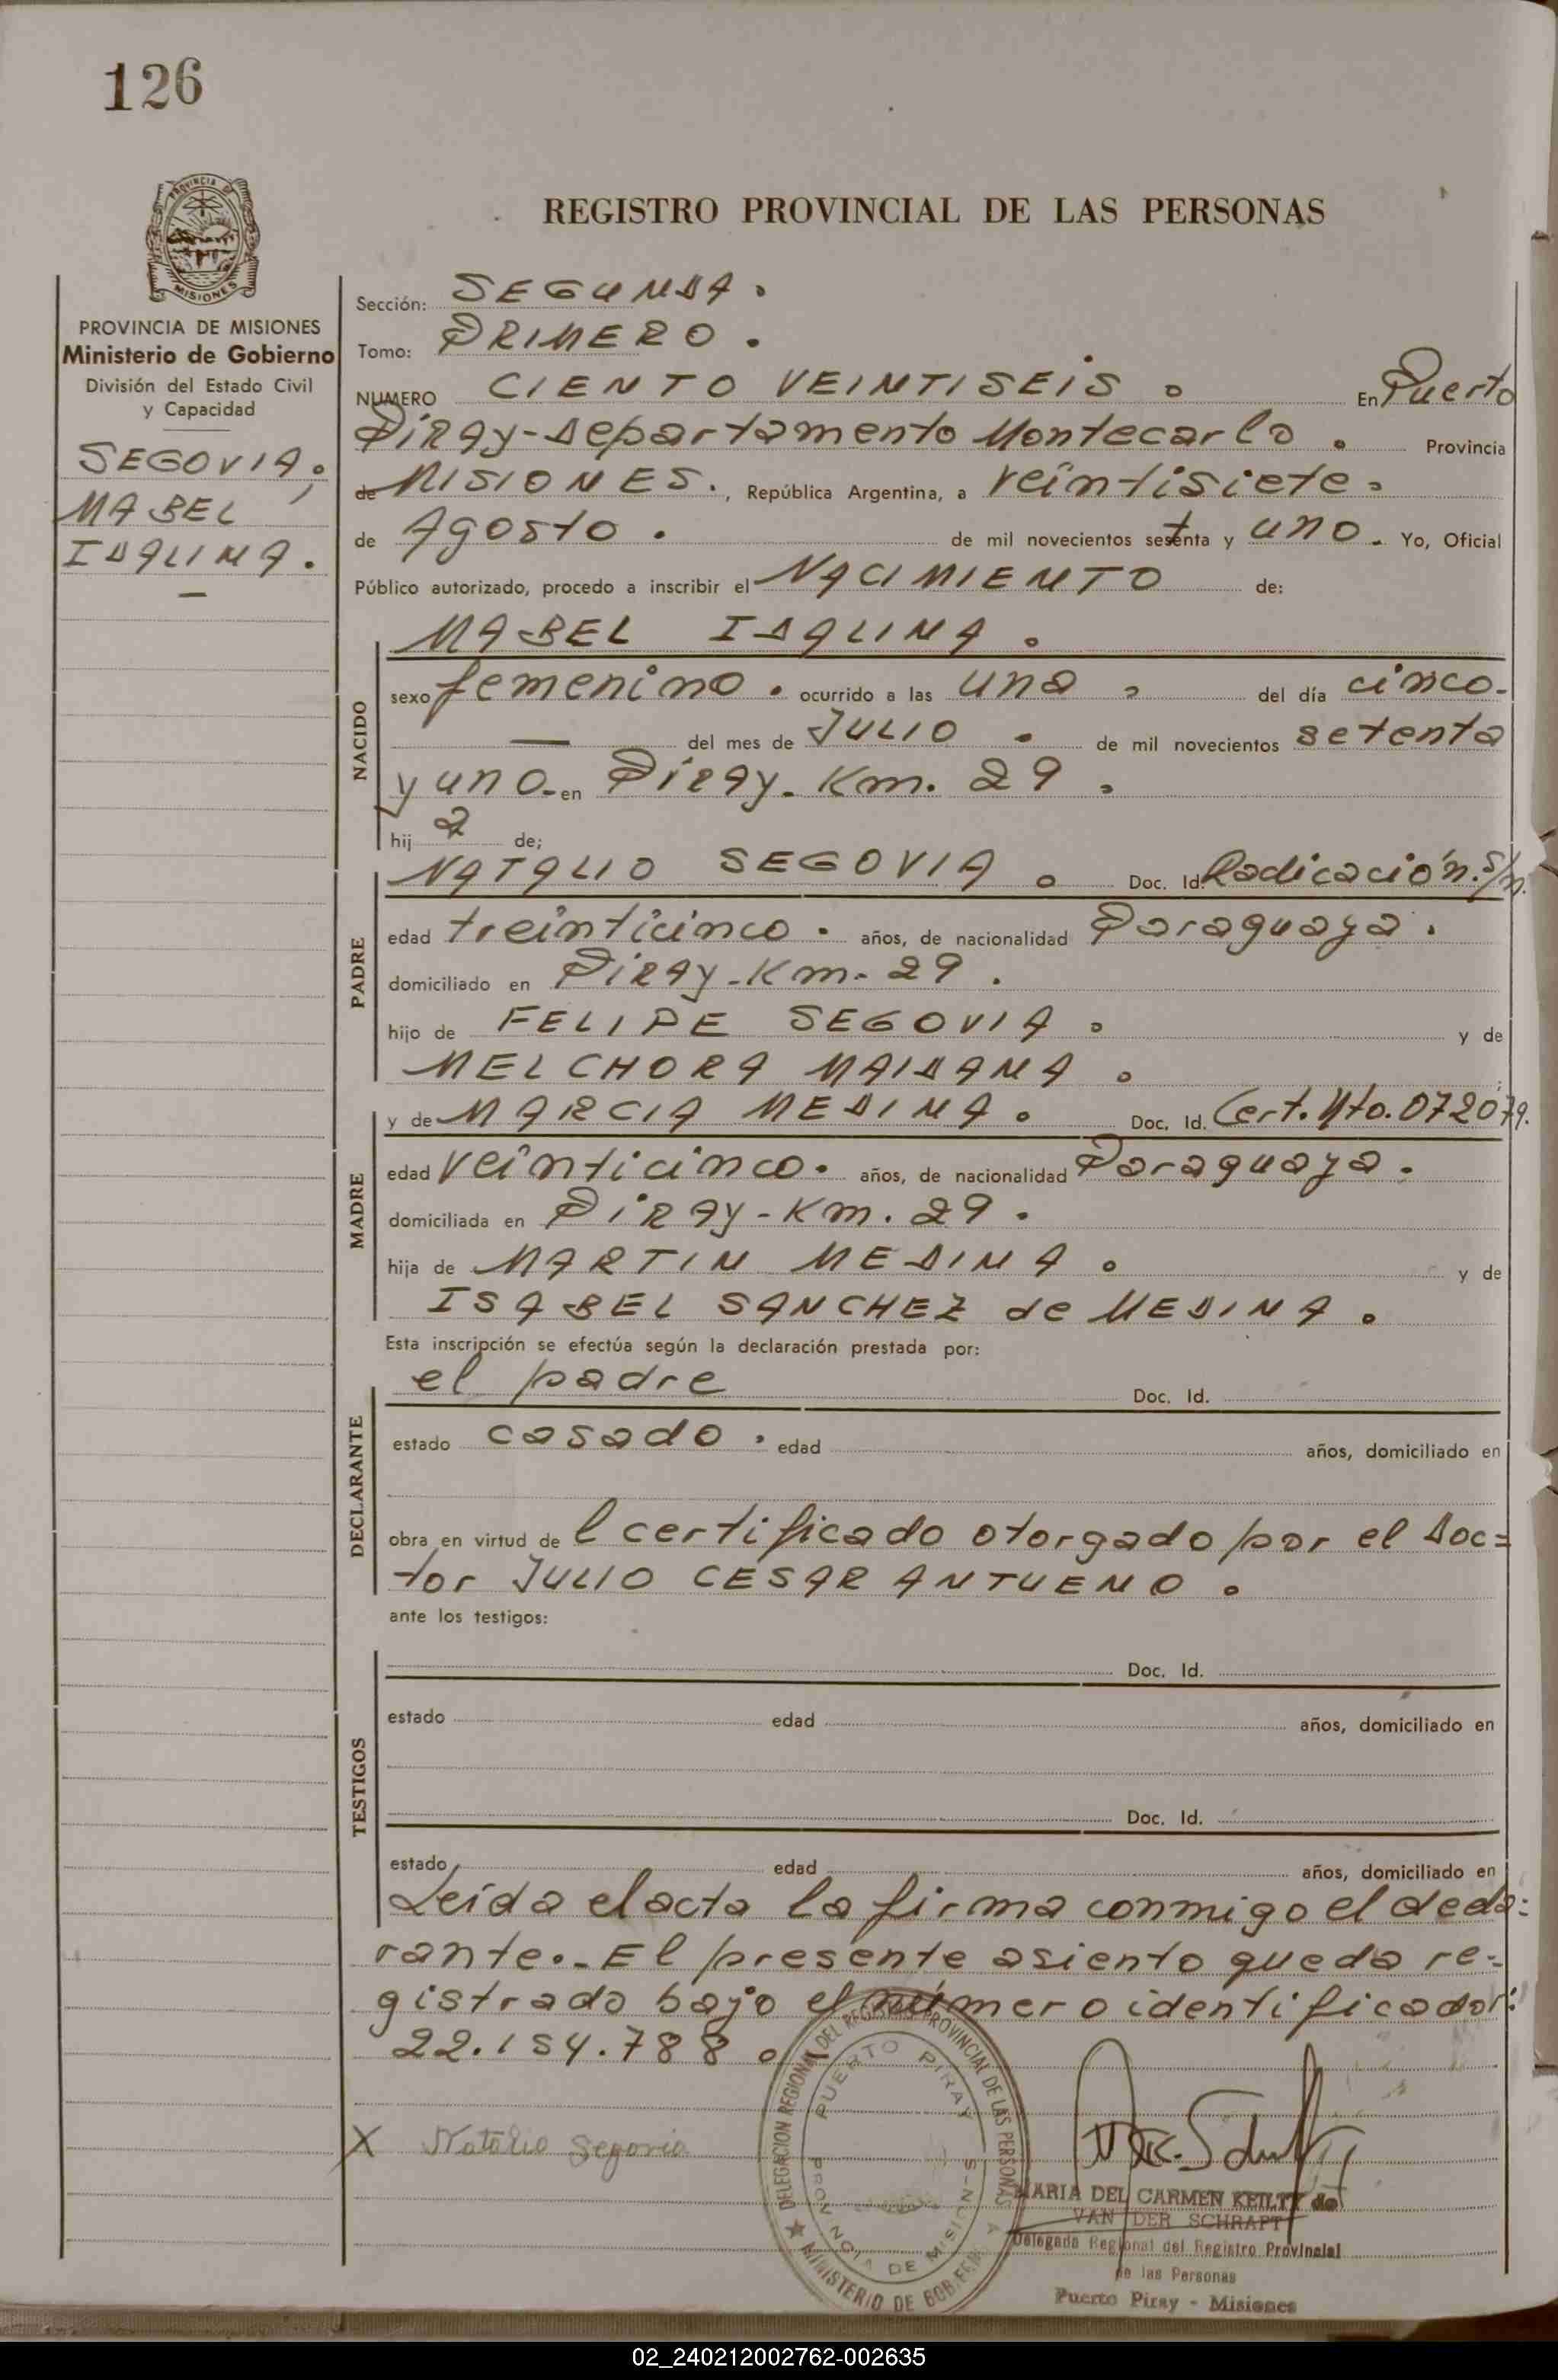 126
PROVINCIA DE
MISIONES
REGISTRO PROVINCIAL DE LAS PERSONAS
PROVINCIA DE MISIONES
Ministerio de Gobierno
División del Estado Civil
y Capacidad
SEGOVIA,
MABEL
IDALINA.
—
Sección: SEGUNDA.
Tomo: PRIMERO.
NUMERO CIENTO VEINTISEIS. En Puerto
Piray-Departamento Montecarlo. Provincia
de MISIONES., República Argentina, a veintisiete.
de Agosto. de mil novecientos setenta y uno. Yo, Oficial
Público autorizado, procedo a inscribir el NACIMIENTO de:
NACIDO
MABEL IDALINA.
sexo femenino. ocurrido a las una. del día cinco.
— del mes de JULIO. de mil novecientos setenta
y uno. en Piray. Km. 29.
hij a de;
PADRE
NATALIO SEGOVIA. Doc. Id. Radicación. S/n.
edad treinticinco. años, de nacionalidad Paraguaya.
domiciliado en Piray-Km-29.
hijo de FELIPE SEGOVIA. y de
MELCHORA MAIDANA.
MADRE
y de MARCIA MEDINA. Doc. Id. Cert. Nto. 072079.
edad veinticinco. años, de nacionalidad Paraguaya.
domiciliada en Piray-Km. 29.
hija de MARTIN MEDINA. y de
ISABEL SANCHEZ de MEDINA.
Esta inscripción se efectúa según la declaración prestada por:
DECLARANTE
el padre Doc. Id.
estado casado. edad años, domiciliado en
obra en virtud de l certificado otorgado por el Doc=
tor JULIO CESAR ANTUENO.
ante los testigos:
TESTIGOS
Doc. Id.
estado edad años, domiciliado en
Doc. Id.
estado edad años, domiciliado en
Leída el acta la firma conmigo el decla=
rante.-El presente asiento queda re-
gistrado bajo el número identificador:
22.154.788.
X Natalio Segovia
DELEGACION REGIONAL DEL REGISTRO PROVINCIAL DE LAS PERSONAS
PUERTO PIRAY
PROVINCIA DE MISIONES
MINISTERIO DE GOB.
MARIA DEL CARMEN KEILTY de
VAN DER SCHRAFT
Delegada Regional del Registro Provincial
de las Personas
Puerto Piray - Misiones
02_240212002762-002635